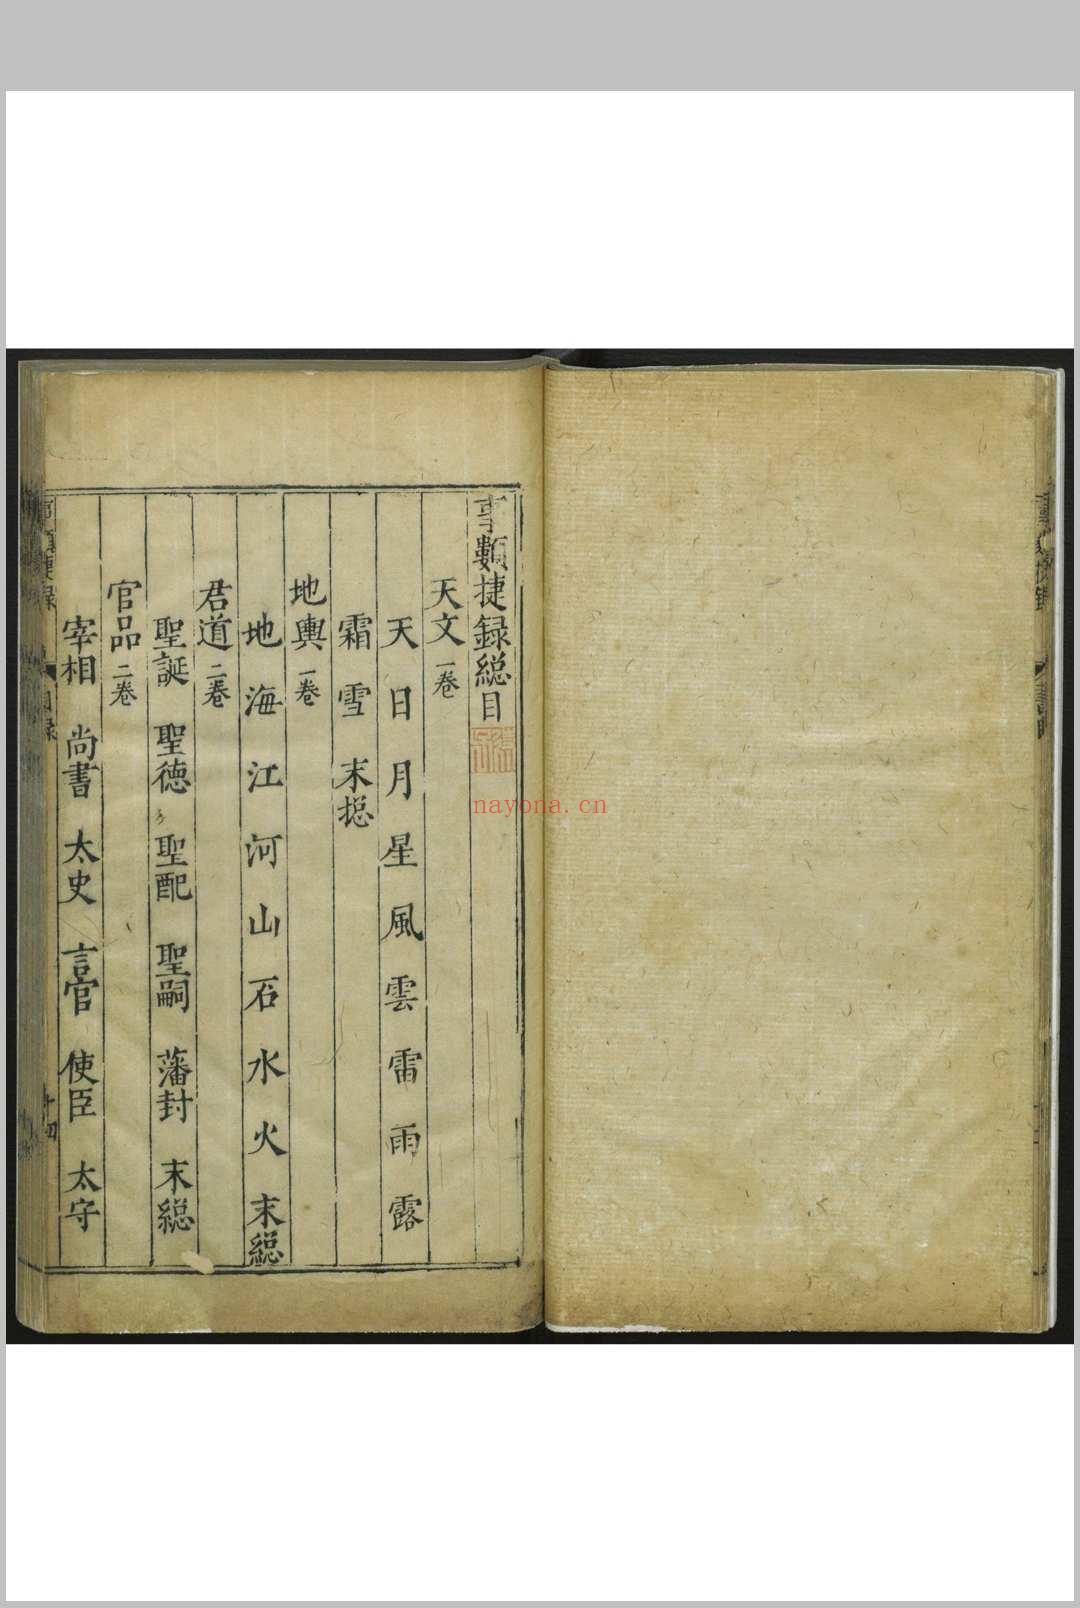 事類捷録総目
天文一卷
天 日 月 星 風 雲 雷 雨 露
霜 雪 末摠
地輿一卷
地 海 江 河 山 石 水 火 末総
君道二卷
聖誕 聖德 聖配 聖嗣 藩封 末総
官品二卷
宰相 尚書 太史 言官 使臣 太守
目録
nayona.cn